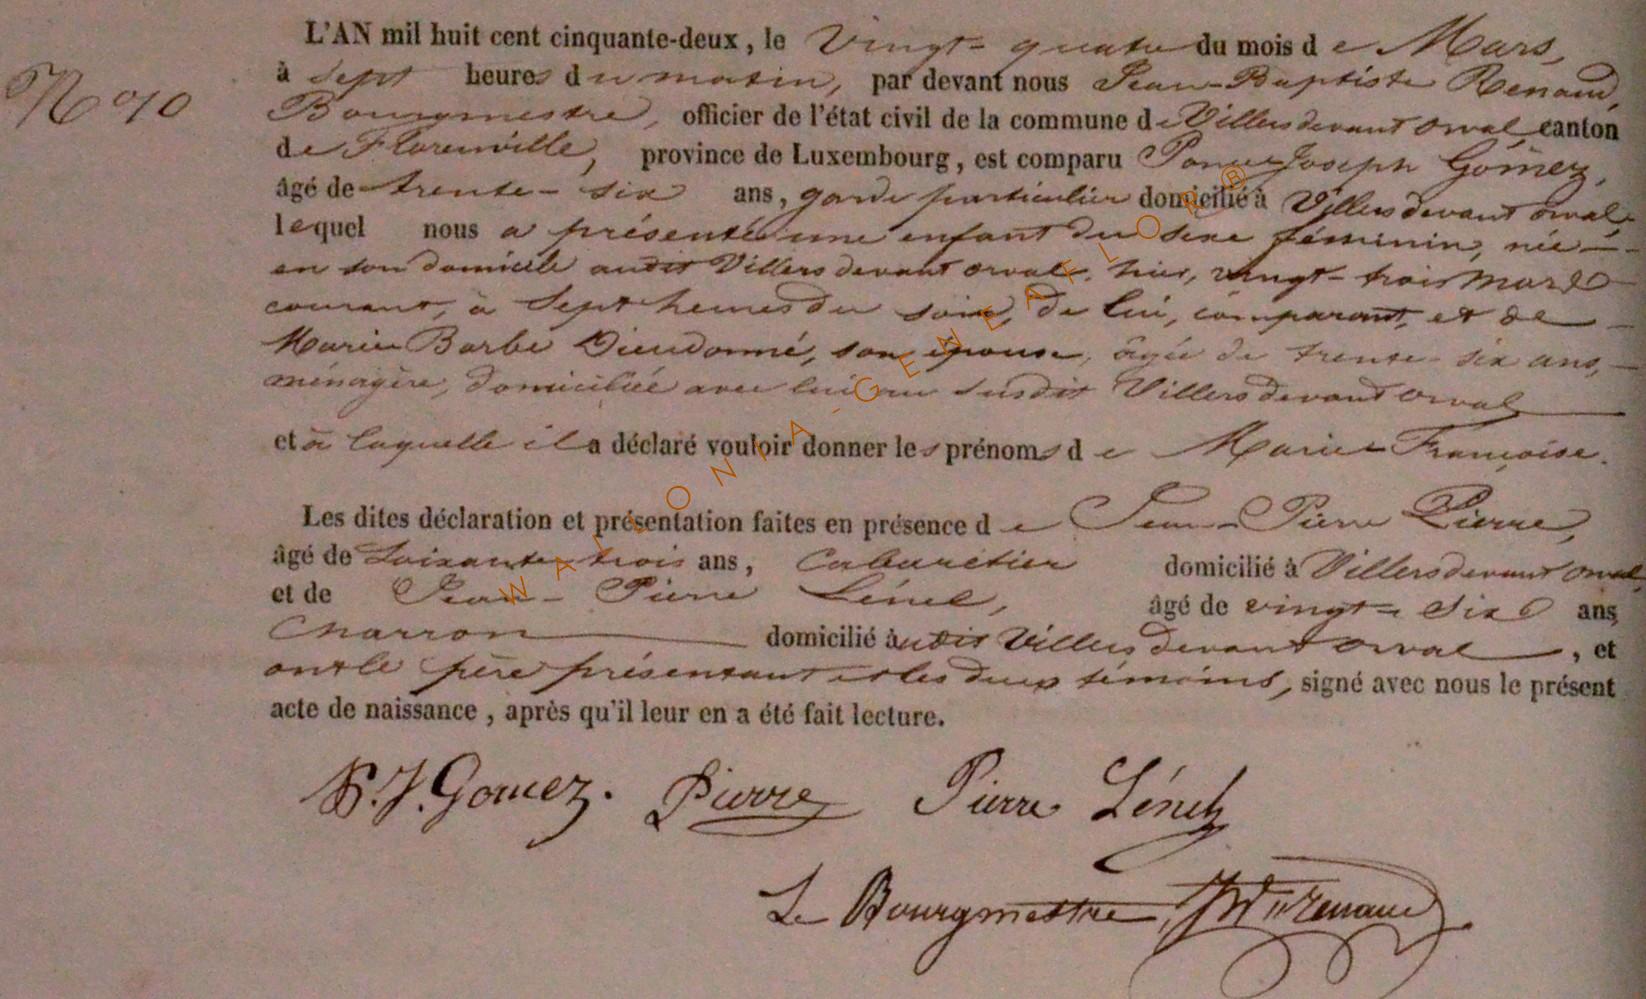 L'AN mil huit cent cinquante-deux, le Vingt-quatre du mois de Mars,
à Sept heures du matin, par devant nous Jean-Baptiste Renaud,
N° 10
Bourgmestre, officier de l'état civil de la commune de Villers devant orval, canton
de Florenville, province de Luxembourg, est comparu Joseph Gômez,
âgé de trente-six ans, garde particulier domicilié à Villers devant orval,
lequel nous a présenté une enfant du sexe féminin, née
en son domicile audit Villers devant orval, hier, vingt-trois mars
courant, à Sept heures du soir, de lui, comparant, et de
Marie Barbe Dieudonné, son épouse, âgée de trente-six ans,
ménagère, domiciliée avec lui au susdit Villers devant orval
et à laquelle il a déclaré vouloir donner les prénoms de Marie Françoise.
Les dites déclaration et présentation faites en présence de Jean-Pierre Pierre,
âgé de Soixante trois ans, Cabaretier domicilié à Villers devant orval,
et de Jean-Pierre Lénel, âgé de vingt-six ans
Charron domicilié audit Villers devant orval, et
ont le père présentant et les deux témoins, signé avec nous le présent
acte de naissance, après qu'il leur en a été fait lecture.
P. J. Gomez. Pierre Pierre Lénel
Le Bourgmestre, Renaud
WALLONIA-GENEAFLOR®